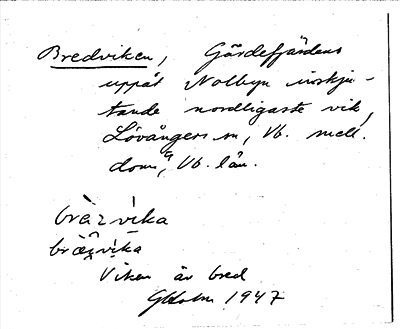 Bredviken, Gärdefjärdens
uppåt Nolbyn inskju-
tande nordligaste vik,
Lövångers sn, Vb. mell.
doms, Vb. län.
Viken är bred
GHolm 1947